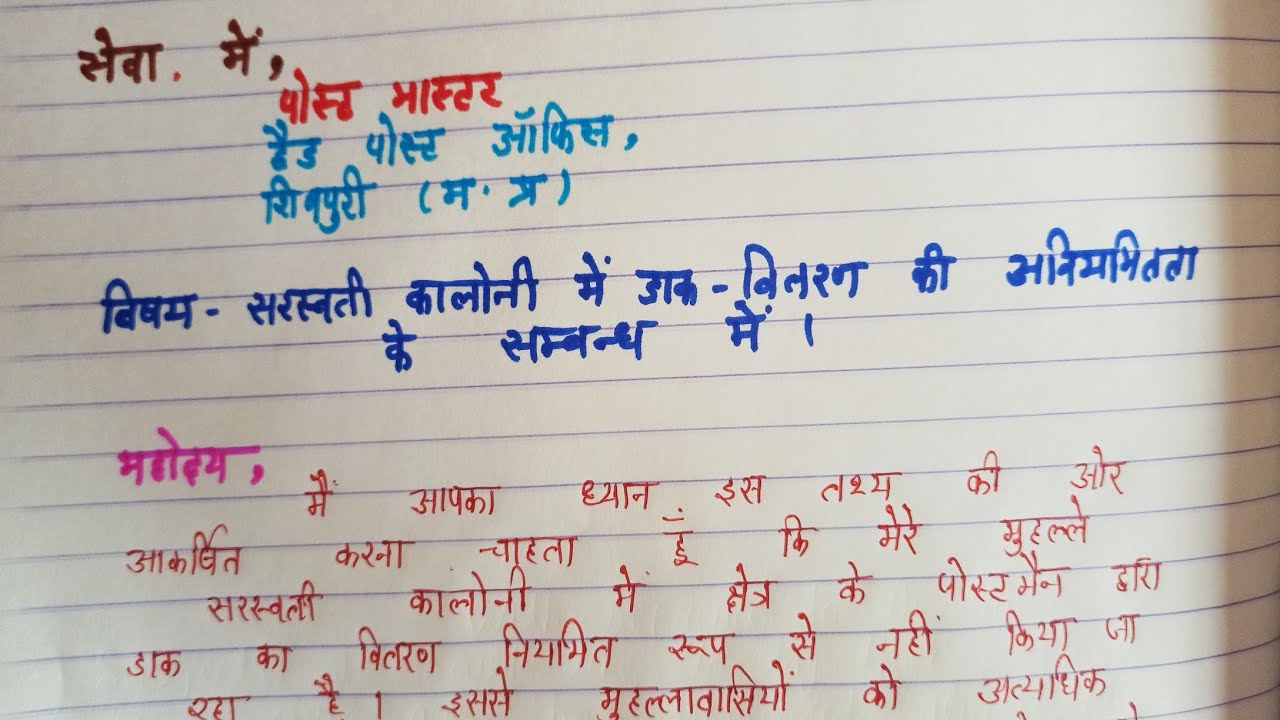 सेवा. में,
पोस्ट मास्टर
हैड पोस्ट ऑफिस,
शिवपुरी (म. प्र)
विषय - सरस्वती कालोनी में डाक - वितरण की अनियमितता
के सम्बन्ध में ।
महोदय,
मैं आपका ध्यान इस तथ्य की ओर
आकर्षित करना चाहता हूँ कि मेरे मुहल्ले
सरस्वती कालोनी में क्षेत्र के पोस्टमैन द्वारा
डाक का वितरण नियमित रूप से नहीं किया जा
रहा है । इससे मुहल्लावासियों को अत्यधिक